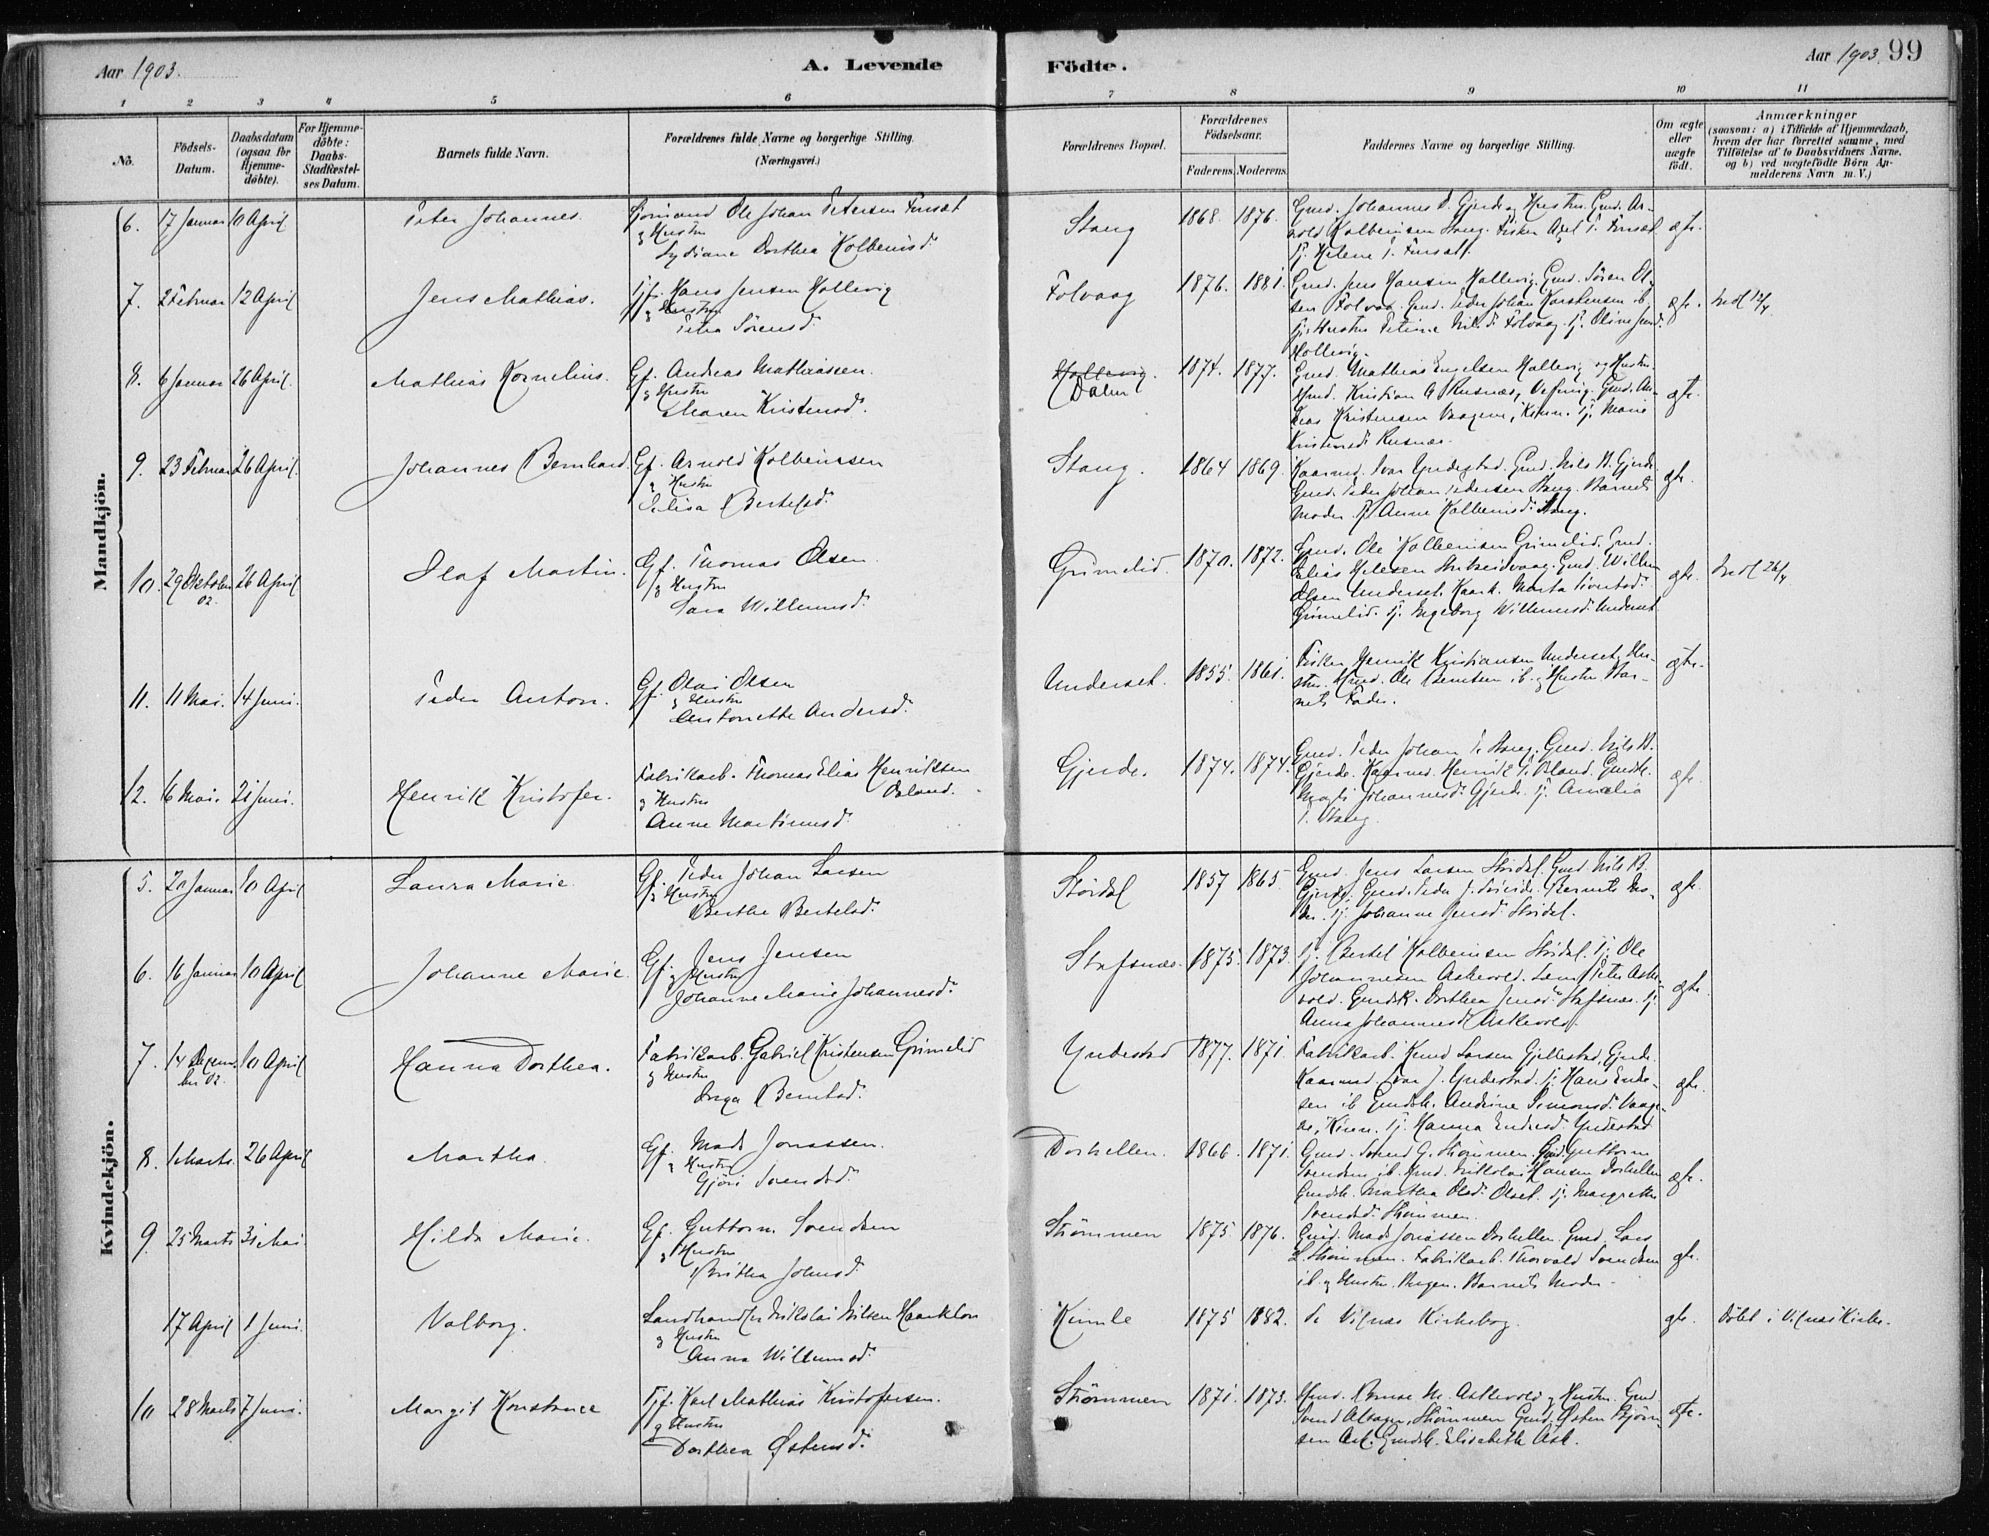 Aar 1903.
A. Levende
Födte.
Aar 1903. 99
1 2 3 4 5 6 7 8 9 10 11
No.
Födsels-
Datum.
Daabsdatum
(ogsaa for
Hjemme-
döbte).
For Hjemme-
döbte:
Daabs-
Stadfæstel-
ses Datum.
Barnets fulde Navn.
Forældrenes fulde Navne og borgerlige Stilling.
(Næringsvei.)
Forældrenes Bopæl.
Forældrenes
Födselsaar.
Faderens. Moderens.
Faddernes Navne og borgerlige Stilling.
Om ægte
eller
uægte
födt.
Anmærkninger
(saasom: a) i Tilfælde af Hjemmedaab,
hvem der har forrettet samme, med
Tilföielse af to Daabsvidners Navne,
og b) ved uægtefödte Börn An-
melderens Navn m. V.)
Mandkjön.
6. 17 Januar 10 April Peter Johannes.
Ole Johan Petersen Furset
og Hustru
Lydiane Dorthea Kolbeinsd.
Stang 1868. 1876.
Gmd. Johannes D. Gjerde og Hustru. Gmd. Ar-
nold Kolbeinsen Stang. Fisker
Pj. Helene
ægte.
7. 2 Februar 12 April Jens Mathias.
Hans Jensen Hollevig
og Hustru
Petra Sörensd.
Folvaag 1876. 1881.
Gmd. Jens Hansen Hollevig. Gmd. Sören Ol-
sen Folvaag. Gmd. Peder Johan Karstensen ib.
Hollevig.
ægte. 12/4
8. 6 Januar 26 April. Mathias Kornelius.
Gf. Andreas Mathiassen.
og Hustru
Maren Kristensd.
Hollevig.
Dalen 1874. 1877.
Gmd. Mathias Engelsen Hollevig og Hustru.
Gmd. Kristian A. Rusnæs,
Kristensen Vaagene, Kinn. Pj. Marie
Kristensd. Rusnæs.
ægte.
9. 23 Februar 26 April. Johannes Bernhard.
Gf. Arnold Kolbeinsen
og Hustru
Bertelsd.
Stang. 1864 1869.
Kaarmd. Ivar Yndestad. Gmd. Nils B. Gjerde.
Gmd. Peder Johan Pedersen Stang. Barnets
Moder. Pj. Anne Kolbeinsd. Stang.
ægte.
10. 29 Oktober 02. 26 April. Olaf Martin.
Gf. Thomas Olsen.
og Hustru
Sara Willumsd.
Grimelid. 1870. 1872.
Gmd. Ole Kolbeinsen Grimelid. Gmd.
Elias Gmd. Willum
Olsen Underset. Kaark. Marta
Grimelid. Pj. Ingeborg Willumsd. Underset
ægte. 26/4
11. 11 Mai. 14 Juni. Peder Anton.
Gf. Olai Olsen
og Hustru
Antonette Andersd.
Underset. 1855. 1861.
Fisker Henrik Kristiansen Underset, Hu-
stru. Gmd. Ole Berntsen ib. og Hustru. Bar-
nets Fader.
ægte.
12. 6 Mai. 21 Juni. Henrik Kristofer.
Fabrikarb. Thomas Elias Henriksen
Osland.
og Hustru
Anne Martinusd.
Gjerde. 1874. 1874.
Gmd. Peder Johan P. Stang. Gmd. Nils B.
Gjerde. Kaarmd. Henrik T. Osland. Gmdsk.
Johannesd. Gjerde. Pj. Amalia
P. Stang.
ægte.
Kvindekjön.
5. 20 Januar 10 April Laura Marie.
Gf. Peder Johan Larsen
og Hustru
Berthe Bertelsd.
Stördal 1857 1865.
Gmd. Jens Larsen Stördal. Gmd. Nils B.
Gjerde. Gmd. Peder J. Barnets Mo-
der. Pj. Johanne Jensd. Stördal.
ægte.
6. 16 Januar 10 April Johanne Marie.
Gf. Jens Jensen
og Hustru
Johanne Marie Johannesd.
Stafsnæs. 1875. 1873.
Pj. Bertel Kolbeinsen Stördal. Pj. Ole
Johannesen Askevold. Peter Aske-
vold. Gmdsk. Dorthea Jensd. Stafsnæs. Pj.
Anna Johannesd. Askevold.
ægte.
7. 14 Decem-
ber 02. 10 April Hanna Dorthea.
Fabrikarb. Gabriel Kristensen Grimelid
og Hustru
Inga Berntsd.
Yndestad 1877. 1871.
Fabrikarb. Knud Larsen Gjellestad, Gjerde.
Kaarmd. Ivar J. Yndestad. Pj. Hans Ende-
sen ib. Gmdsk. Andrine Simonsd. Vaage-
ne, Kinn. Pj. Hanna Endresd. Yndestad
ægte.
8. 1 Marts. 26 April Martha.
Gf. Mads Jonassen.
og Hustru
Gjöri Svendsd.
Doskellen. 1866. 1871.
Gmd. Svend G. Strömmen. Gmd. Guttorm
Svendsen ib. Gmd. Nikolai Hansen Doskellen.
Gmdsk. Martha Olsd. Olset. Pj. Margrethe
Svendsd. Strömmen.
ægte.
9. 25 Marts 31 Mai. Hilda Marie.
Gf. Guttorm Svendsen
og Hustru
Brithe Johnsd.
Strömmen 1875. 1876.
Gmd. Mads Jonassen Doskellen. Gmd. Lars
L. Strömmen. Fabrikarb. Thorvald Svendsen
ib. og Hustru. Barnets Moder.
ægte.
17 April 1 Juni. Valborg.
Landhandler Nikolai Nilsen Haarklou
og Hustru
Anna Willumsd.
Kumle 1875 1882.
Se Vilnæs Kirkebog.
ægte. Döbt i Vilnæs Kirke.
10 28 Marts 7 Juni. Margit Konstance
Karl Mathias Kristofersen.
og Hustru
Dorthea Östensd.
Strömmen 1871. 1873.
Gmd. Rasmus M. Askevold og Hustru. Gmd.
Svend Strömmen. Gmd. Östen Björn-
sen Ask. Gmdsk. Elisabeth Ask.
ægte.